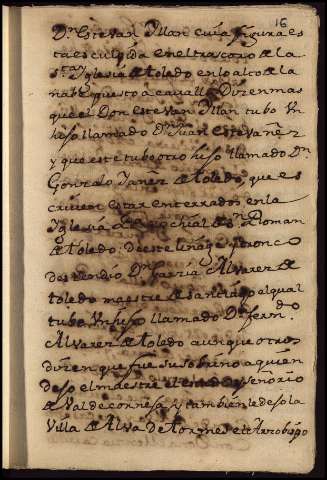 16
Dⁿ Estevan Yllan cuia figura es
ta esculpida en el trascoro de la
Sᵗᵃ Yglesia de toledo en lo alto de la
nabe puesto a cavallo Dizen mas
que el Don Estevan Yllan tubo Un
hijo llamado Dⁿ Juan Estevañez
y que este tubo otro hijo llamado Dⁿ
Gonzalo Yañez de toledo, que es
criven estar enterrados en la
Yglesia de Sⁿ Roman
de toledo: de este linage y tronco
desçendio Dⁿ garzia Alvarez de
toledo maestre de santiago el qual
tubo Un hijo llamado Dⁿ fernᵈᵒ
Alvarez de toledo aunque otros
dizen que fue su sobrino a quien
deso el maestre el estado y señorio
de Val de corneja, y tambien le deso la
Villa de Alva de tormes el Arzobispo